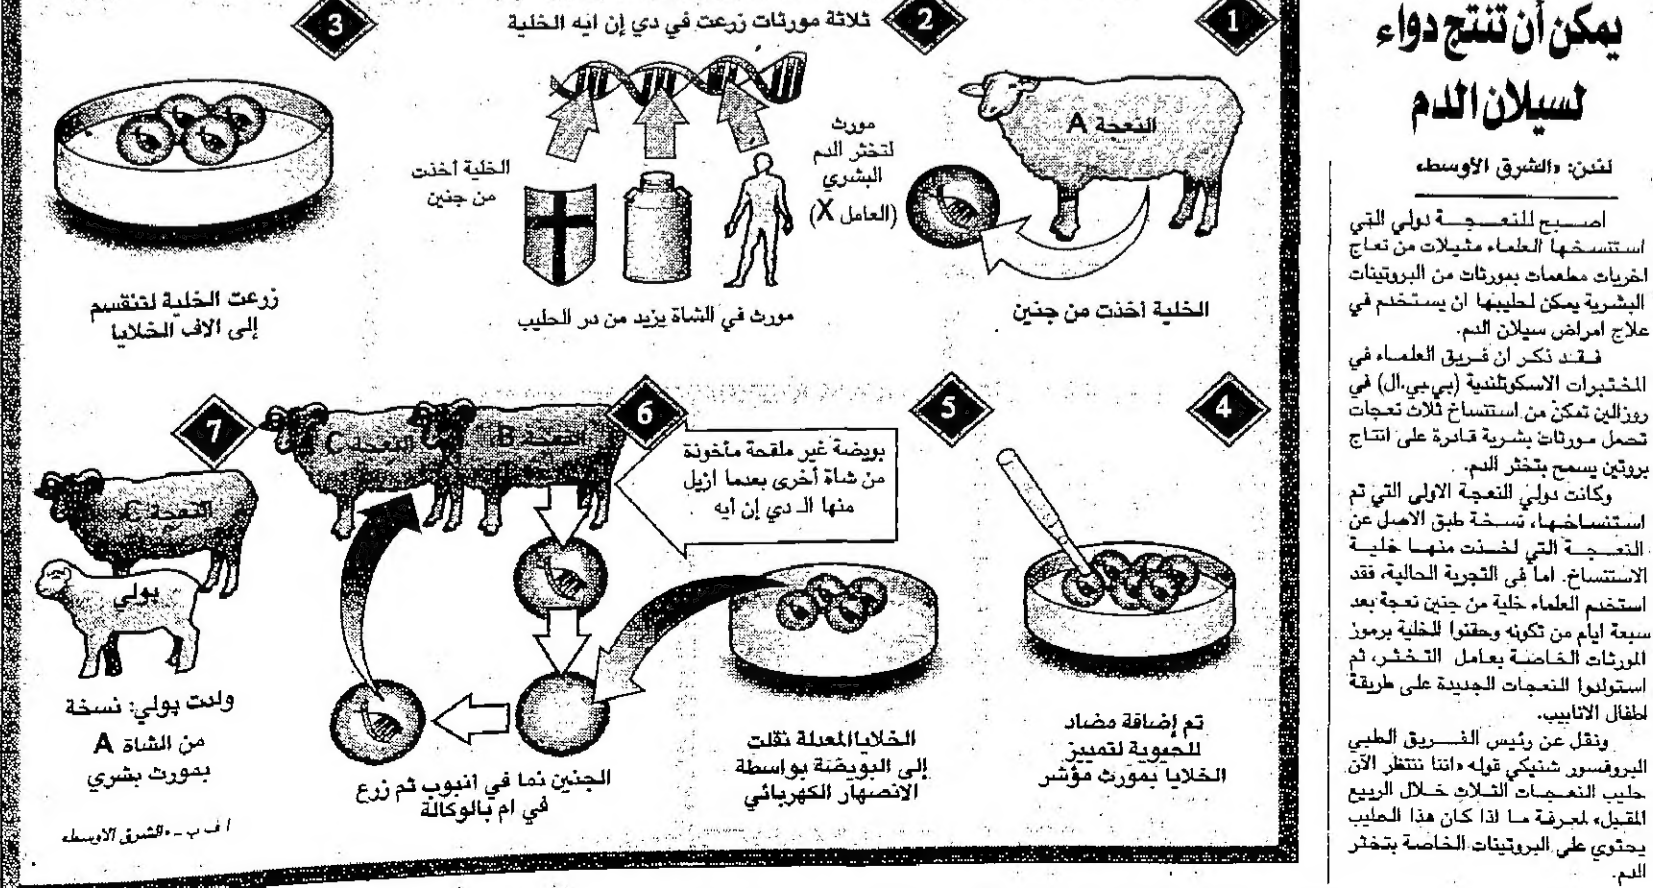 يمكن أن تنتج دواء
لسيلان الدم
لندن: «الشرق الأوسط»
اصبح للنعجة دولي التي
استنسخها العلماء مثيلات من نعاج
اخريات مطعمات بمورثات من البروتينات
البشرية يمكن لحليبها ان يستخدم في
علاج امراض سيلان الدم.
فقد ذكر ان فريق العلماء في
المختبرات الاسكوتلندية (بي.بي.ال) في
روزالين تمكن من استنساخ ثلاث نعجات
تحمل مورثات بشرية قادرة على انتاج
بروتين يسمح بتخثر الدم.
وكانت دولي النعجة الاولى التي تم
استنساخها، نسخة طبق الاصل عن
النعجة التي اخذت منها خلية
الاستنساخ. اما في التجربة الحالية، فقد
استخدم العلماء خلية من جنين نعجة بعد
سبعة ايام من تكونه وحقنوا الخلية برموز
المورثات الخاصة بعامل التخثر، ثم
استولدوا النعجات الجديدة على طريقة
اطفال الانابيب.
ونقل عن رئيس الفريق الطبي
البروفسور شنيكي قوله «اننا ننتظر الآن
حليب النعجات الثلاث خلال الربيع
المقبل» لمعرفة ما اذا كان هذا الحليب
يحتوي على البروتينات الخاصة بتخثر
الدم.
1
النعجة A
الخلية أخذت من جنين
2
ثلاثة مورثات زرعت في دي إن ايه الخلية
مورث
لتخثر الدم
البشري
(العامل X)
الخلية أخذت
من جنين
مورث في الشاة يزيد من در الحليب
3
زرعت الخلية لتنقسم
إلى الاف الخلايا
4
تم إضافة مضاد
للحيوية لتمييز
الخلايا بمورث مؤشر
5
الخلايا المعدلة نقلت
إلى البويضة بواسطة
الانصهار الكهربائي
6
بويضة غير ملقحة مأخوذة
من شاة أخرى بعدما ازيل
منها الـ دي إن أيه
النعجة B
النعجة C
الجنين نما في انبوب ثم زرع
في ام بالوكالة
7
النعجة C
بولي
ولدت بولي: نسخة
من الشاة A
بمورث بشري
ا ف ب - «الشرق الأوسط»